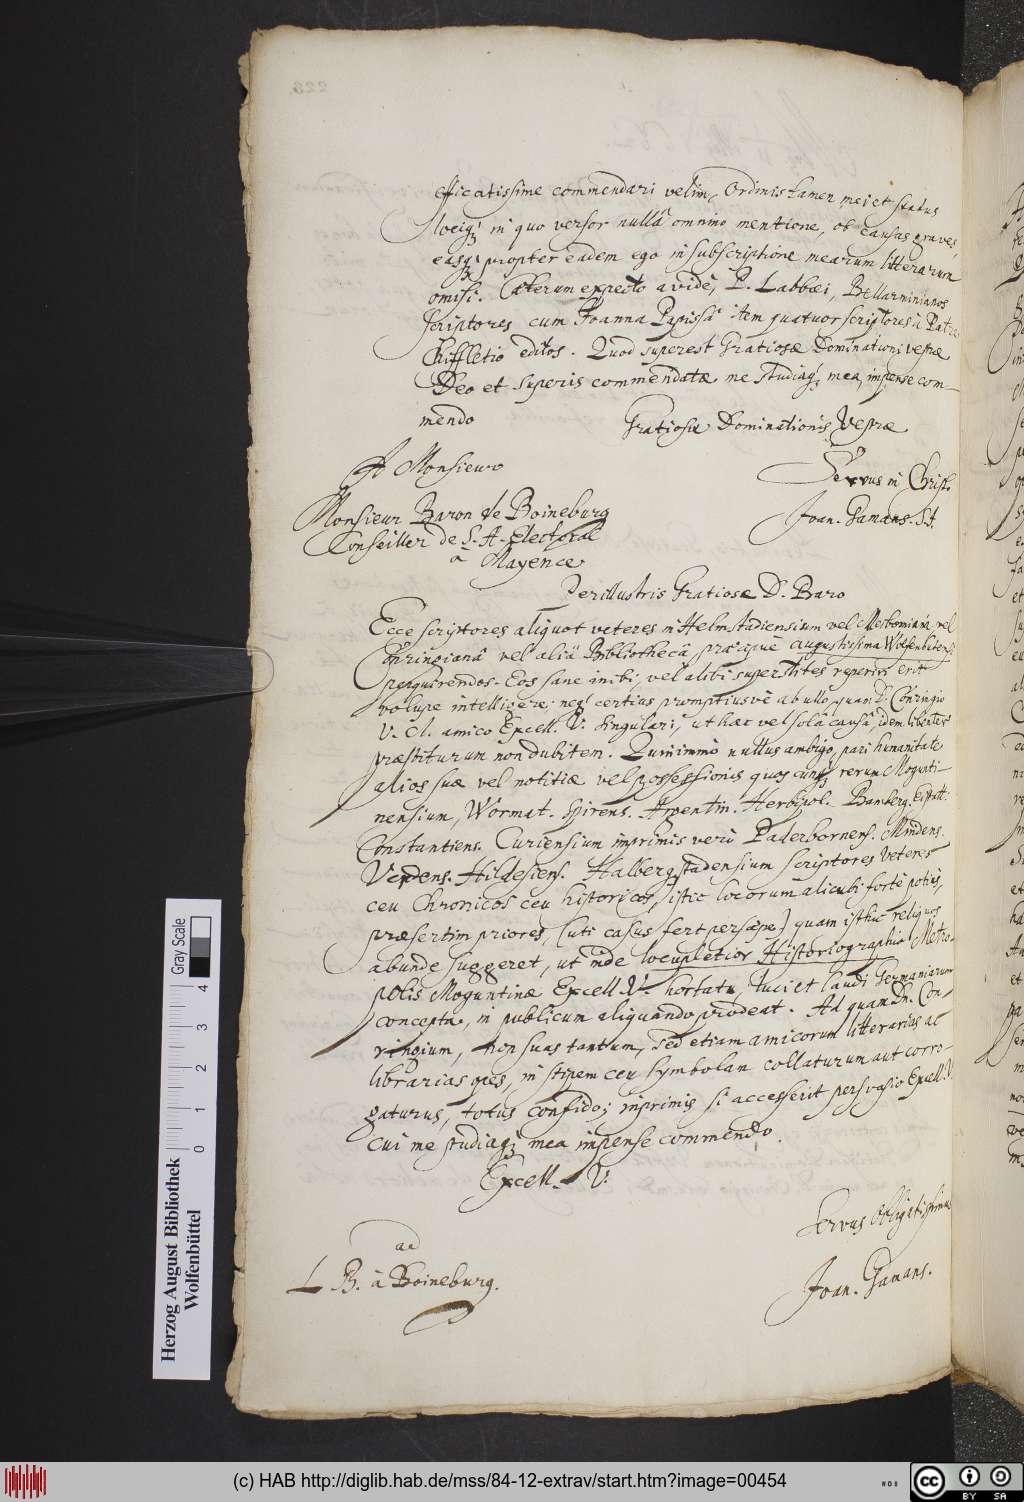 efficatissime commendari velim, Ordinis tamen mei et status
lociq; in quo versor nullâ omnino mentione, ob causas graves,
easq; propter eadem ego in subscriptione mearum litterarum
omisi. Cæterum expecto avidè, P. Labbæi, Bellarminianos
scriptores cum Joanna Papissâ item quatuor scriptores à Patre
Chiffletio editos. Quod superest Gratiosæ Dominationi vestræ
Deo et superis commendatæ me studiaq; mea, impense com-
mendo
Gratiosæ Dominationis Vestræ
A Monsieur
Servus in Christo
Monsieur Baron de Boineburg
Joan. Gamans. S.J.
Conseiller de S. A. Electoral
a Mayence
Perillustris Gratiose D. Baro
Ecce scriptores aliquot veteres in Helmstadiensium vel Meibomianâ, vel
Conringianâ vel aliâ Bibliothecâ, præcipuè augustissima Wolfenbütensi
perquirendos. Eos sane inibi, vel alibi superstites reperiri erit
volupe intelligere; neq; certius promptiusvè ab ullo quam D. Conringio
V. Cl. amico Excell. V. singulari, ut hæc vel solâ causâ, idem libenter
præstiturum non dubitem. Quinimmò nullus ambigo, pari humanitate
alios suæ vel notitiæ vel possessionis quoscunq; rerum Mogunti-
nensium, Wormat. Spirens. Argentin. Herbipol. Bamberg. Eistatt.
Constantiens. Curiensium imprimis verò Paderbornens. Mindens.
Verdens. Hildesiens. Halberstadensium scriptores veteres
ceu Chronicos ceu historicos, istic locorum alicubi fortè potius,
præsertim priores, (uti casus fert persæpe) quam isthic reliquos
abunde suggeret, ut inde locupletior Historiographia Metro-
polis Moguntinæ Excell. V. hortatu, luci et laudi Germaniarum
concepta, in publicum aliquando prodeat. Ad quam Dn. Con-
ringium, non suas tantum, sed etiam amicorum litterarias ac
librarias opes, in stipem ceu symbolam collaturum aut corro-
gaturus, totus confido; inprimis si accesserit persvasio Excell. V.
cui me studiaq; mea impense commendo.
Excell. V.
Servus obligatissimus
ad
L. B. à Boineburg.
Joan. Gamans.
Herzog August Bibliothek
Wolfenbüttel
0 1 2 3 4
Gray Scale
(c) HAB http://diglib.hab.de/mss/84-12-extrav/start.htm?image=00454
cc BY SA